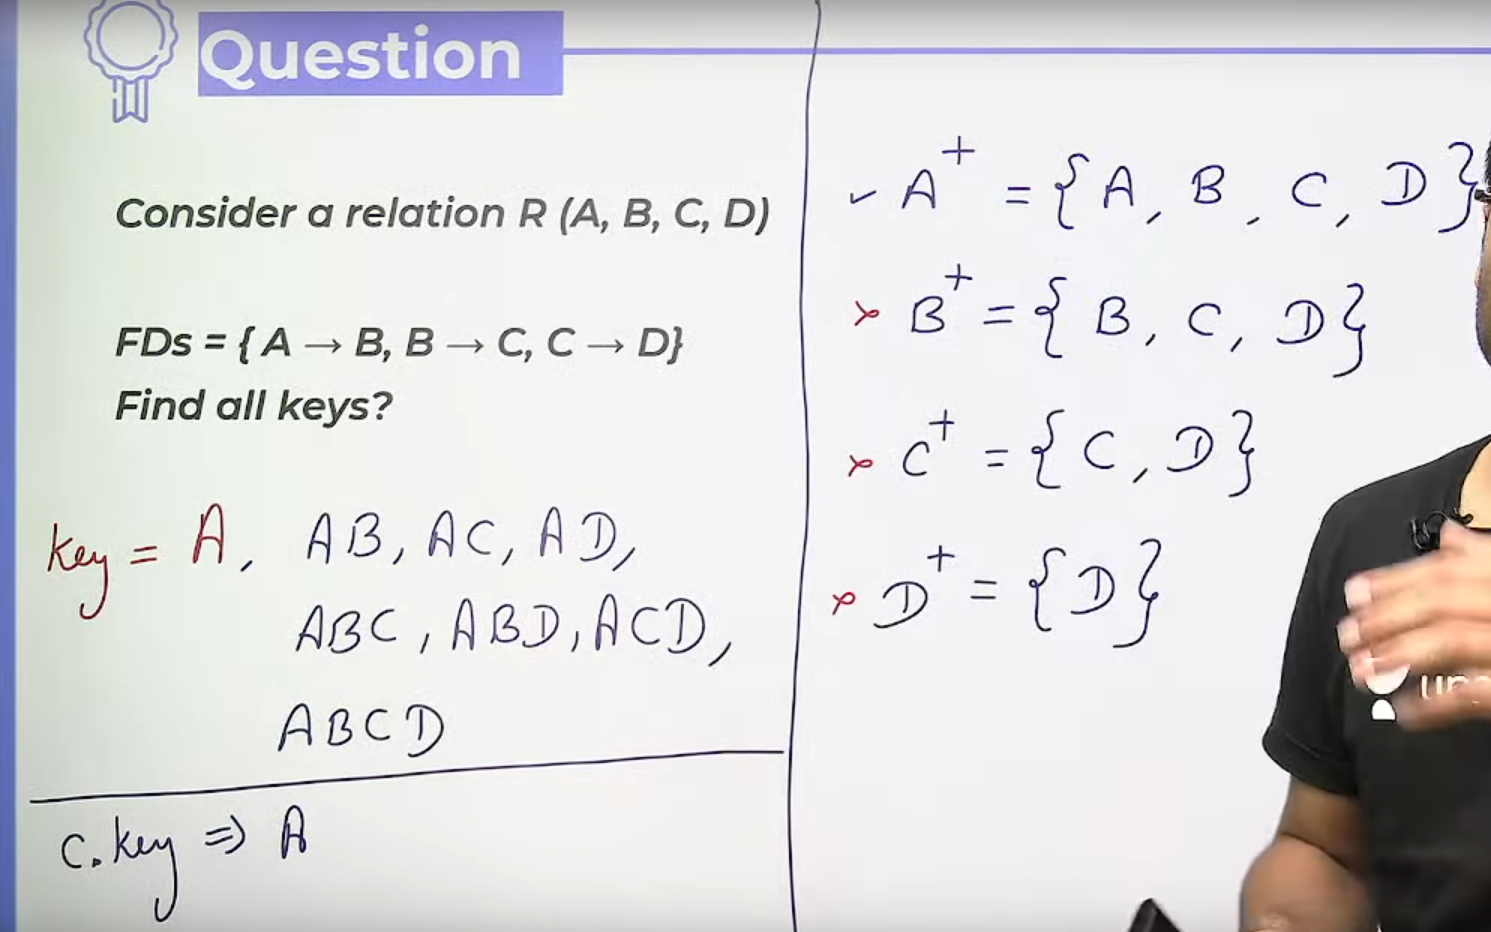 Question
Consider a relation R (A, B, C, D)
FDs = { A → B, B → C, C → D}
Find all keys?
key = A, AB, AC, AD,
ABC, ABD, ACD,
ABCD
C.key ⇒ A
✓ A⁺ = {A, B, C, D}
✗ B⁺ = {B, C, D}
✗ C⁺ = {C, D}
✗ D⁺ = {D}